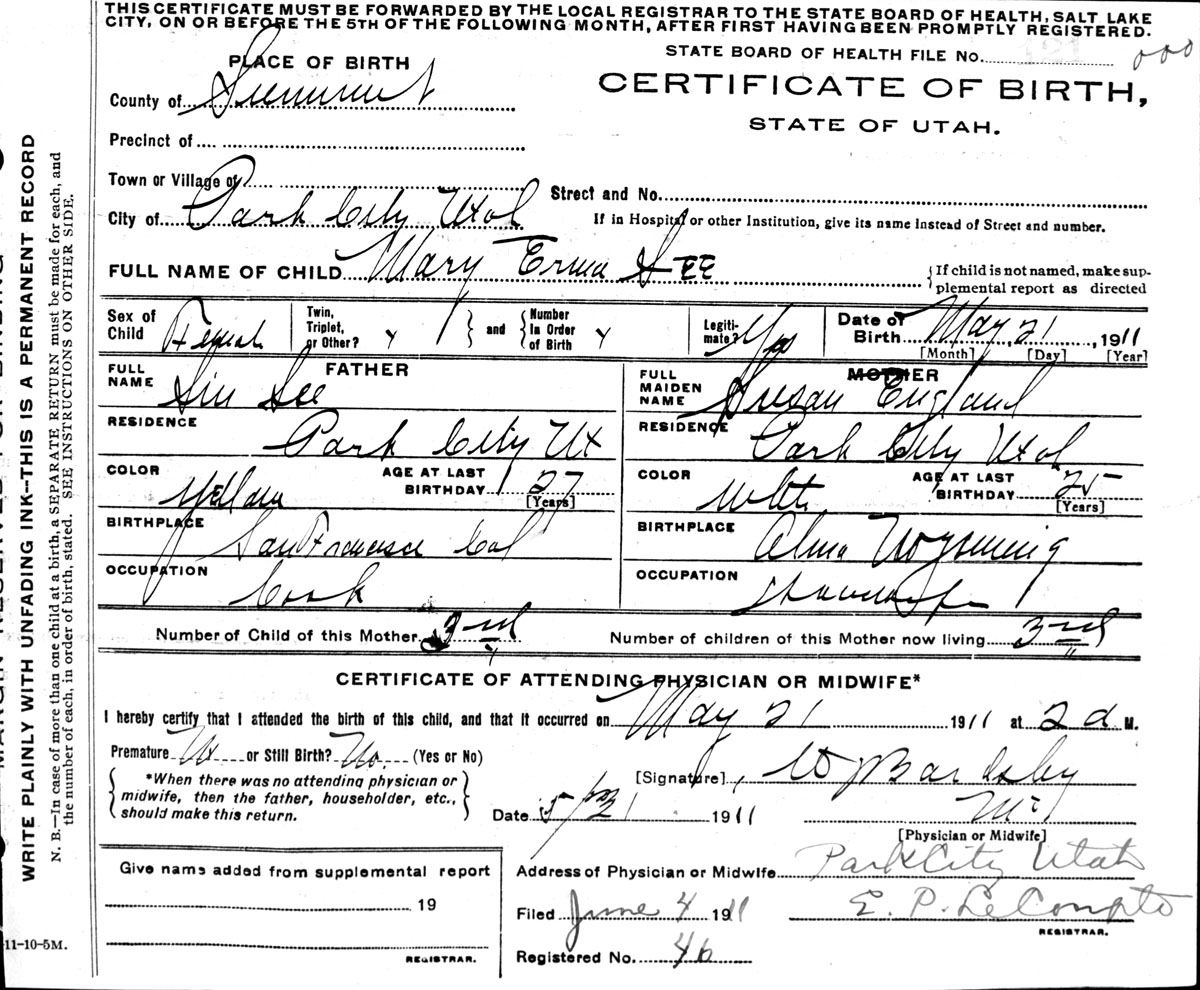 THIS CERTIFICATE MUST BE FORWARDED BY THE LOCAL REGISTRAR TO THE STATE BOARD OF HEALTH, SALT LAKE
CITY, ON OR BEFORE THE 5TH OF THE FOLLOWING MONTH, AFTER FIRST HAVING BEEN PROMPTLY REGISTERED.
STATE BOARD OF HEALTH FILE No. 121 000
PLACE OF BIRTH
CERTIFICATE OF BIRTH,
County of Summit
STATE OF UTAH.
Precinct of
Town or Village of
Street and No.
City of Park City Utah
If in Hospital or other Institution, give its name instead of Street and number.
FULL NAME OF CHILD Mary Erma LEE
{If child is not named, make sup-
plemental report as directed
Sex of Child Female
Twin, Triplet, or Other?
and
Number In Order of Birth
Legiti-mate? Yes
Date of Birth May 21, 1911
[Month] [Day] [Year]
FATHER
FULL NAME
MOTHER
FULL MAIDEN NAME Susan England
RESIDENCE Park City Ut
RESIDENCE Park City Utah
COLOR Yellow
AGE AT LAST BIRTHDAY 27 [Years]
COLOR White
AGE AT LAST BIRTHDAY 25 [Years]
BIRTHPLACE San Francisco Cal
BIRTHPLACE Alma Wyoming
OCCUPATION Cook
OCCUPATION Housewife
Number of Child of this Mother 3rd
Number of children of this Mother now living 3rd
CERTIFICATE OF ATTENDING PHYSICIAN OR MIDWIFE*
I hereby certify that I attended the birth of this child, and that it occurred on May 21 1911 at 2 a M.
Premature No or Still Birth? No. (Yes or No)
{*When there was no attending physician or
midwife, then the father, householder, etc.,
should make this return.}
[Signature] W J Bardsley
Date 5/21 1911
[Physician or Midwife]
Give name added from supplemental report
19
REGISTRAR.
Address of Physician or Midwife Park City Utah
Filed June 4 1911 E. P. LeCompte
REGISTRAR.
Registered No. 46
11-10-5M.
WRITE PLAINLY WITH UNFADING INK—THIS IS A PERMANENT RECORD
N. B.—In case of more than one child at a birth, a SEPARATE RETURN must be made for each, and
the number of each, in order of birth, stated. SEE INSTRUCTIONS ON OTHER SIDE.